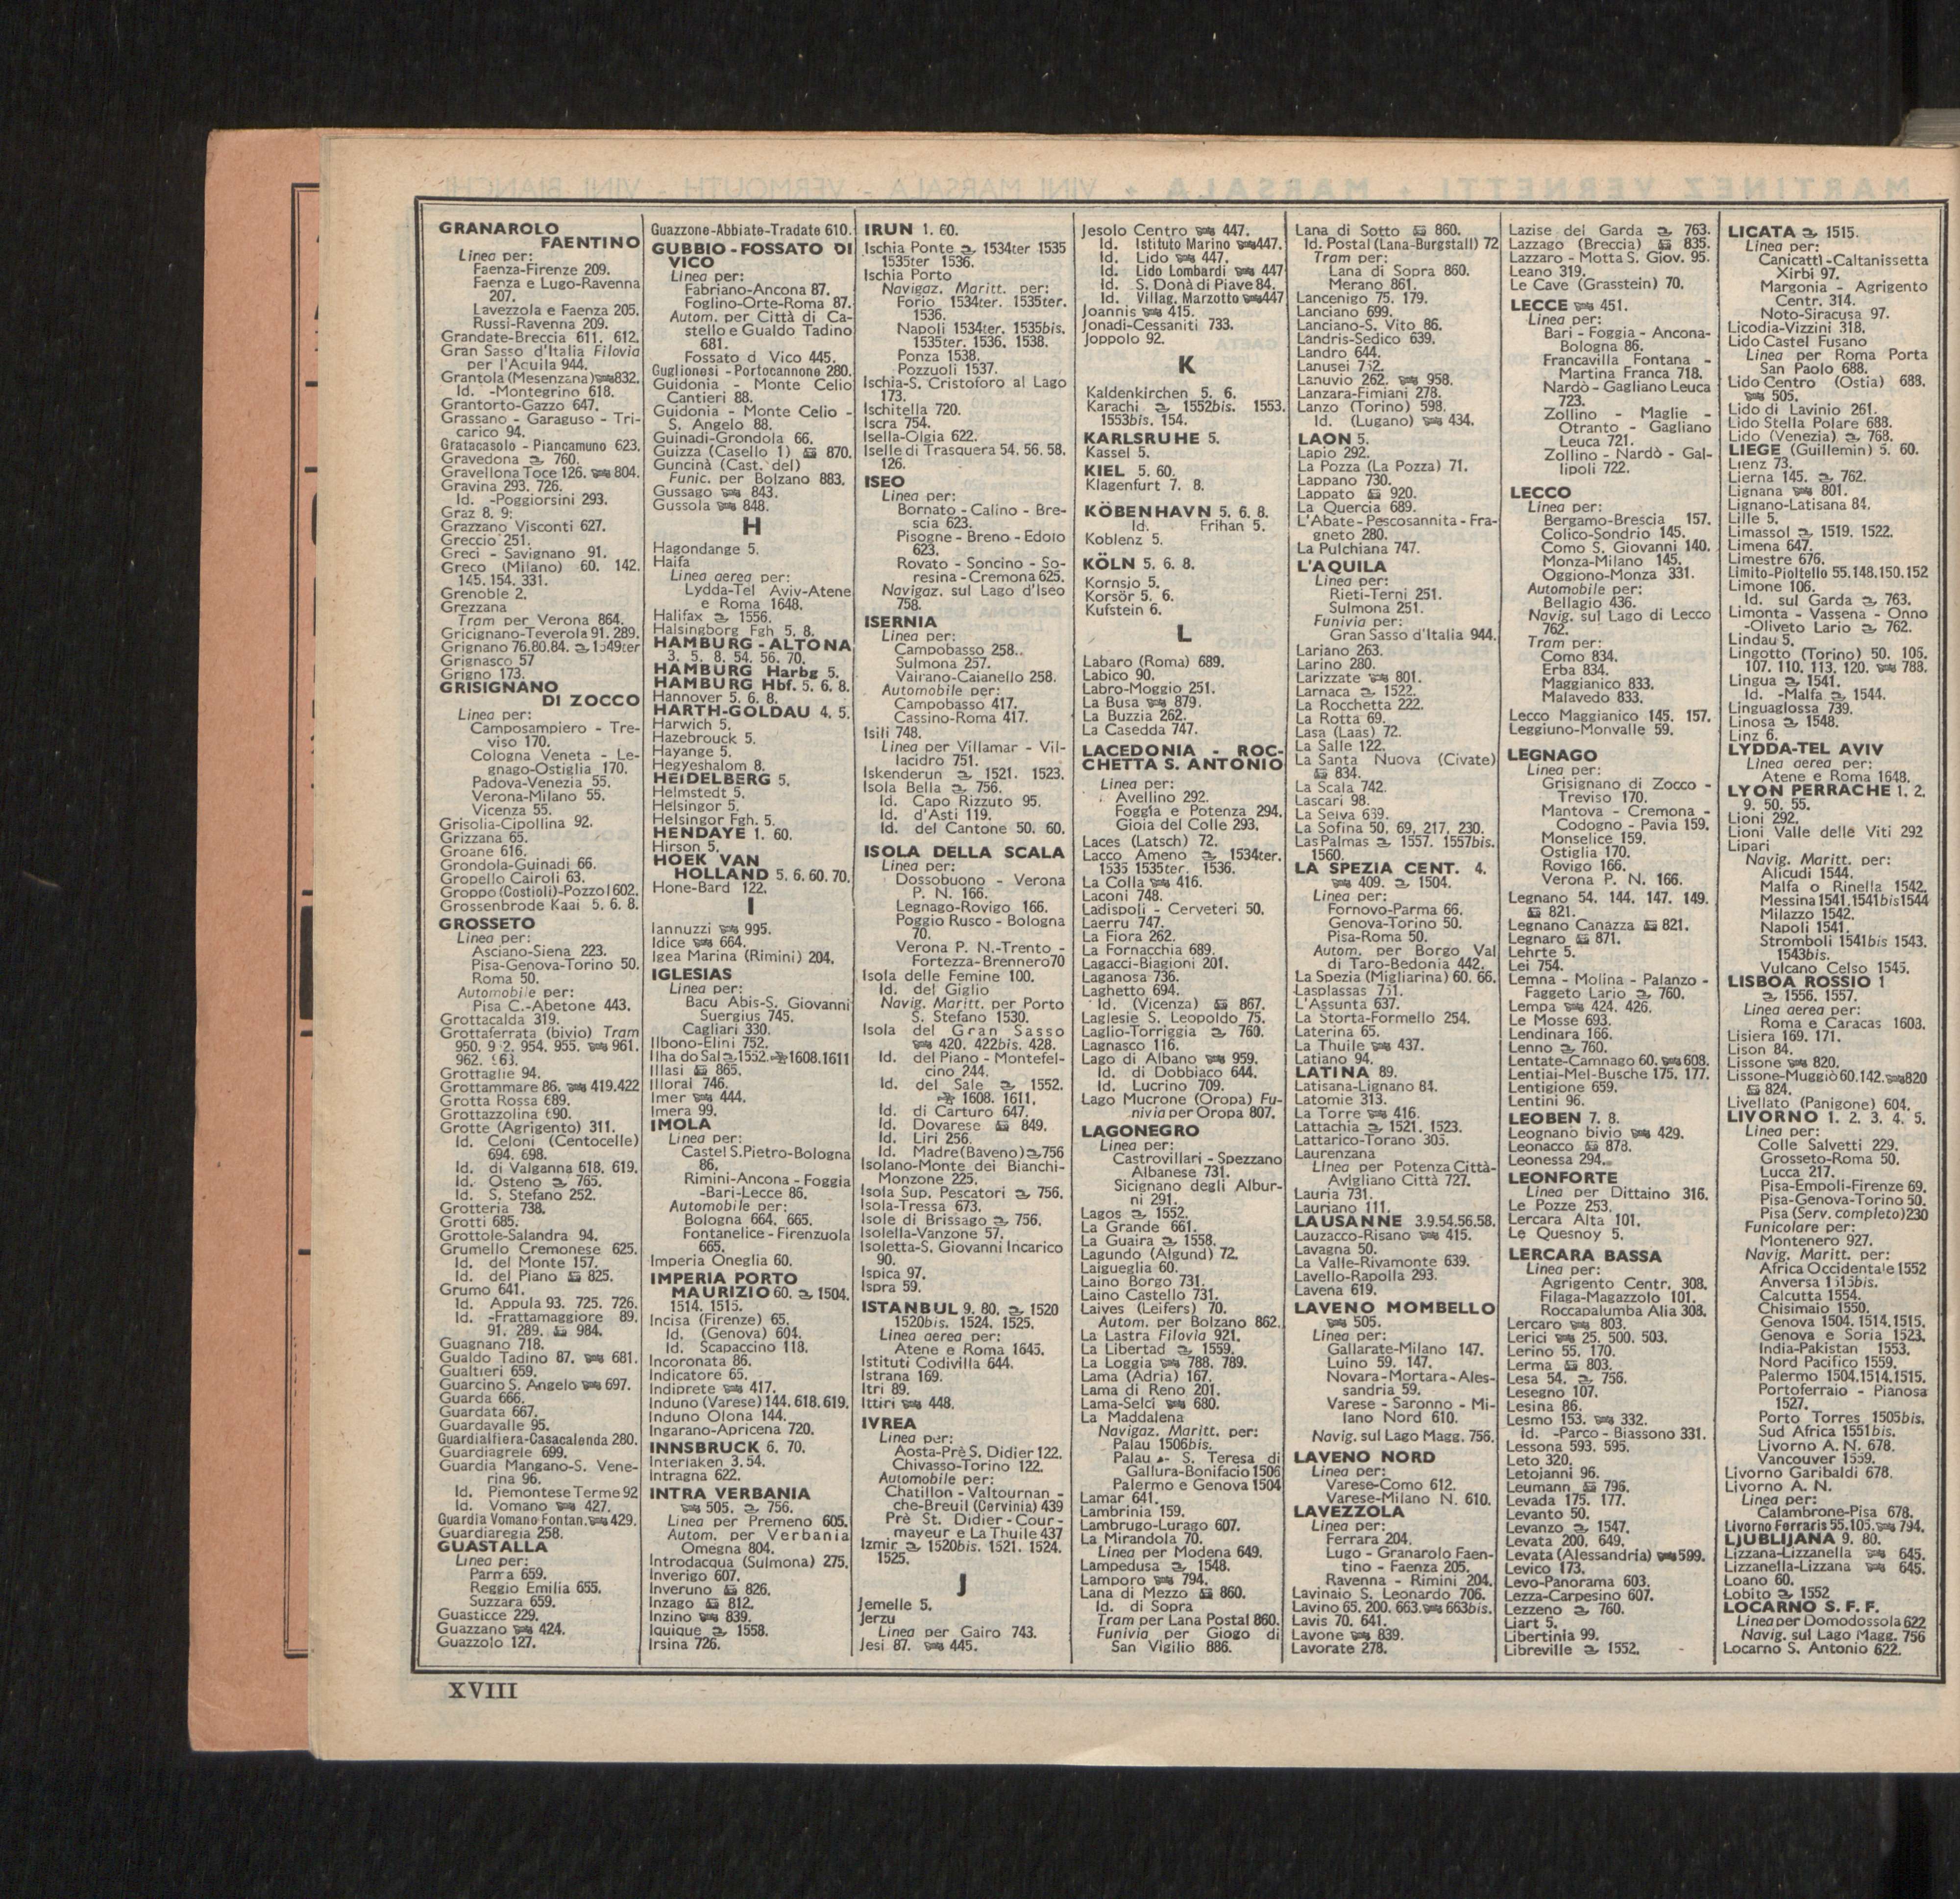 GRANAROLO
FAENTINO
Linea per:
Faenza-Firenze 209.
Faenza e Lugo-Ravenna
207.
Lavezzola e Faenza 205.
Russi-Ravenna 209.
Grandate-Breccia 611. 612.
Gran Sasso d'Italia Filovia
per l'Aquila 944.
Grantola (Mesenzana) 832.
Id. -Montegrino 618.
Grantorto-Gazzo 647.
Grassano - Garaguso - Tri-
carico 94.
Gratacasolo - Piancamuno 623.
Gravedona 760.
Gravellona Toce 126. 804.
Gravina 293. 726.
Id. -Poggiorsini 293.
Graz 8. 9:
Grazzano Visconti 627.
Greccio 251.
Greci - Savignano 91.
Greco (Milano) 60. 142.
145. 154. 331.
Grenoble 2.
Grezzana
Tram per Verona 864.
Gricignano-Teverola 91. 289.
Grignano 76.80.84. 1549ter
Grignasco 57
Grigno 173.
GRISIGNANO
DI ZOCCO
Linea per:
Camposampiero - Tre-
viso 170.
Cologna Veneta - Le-
gnago-Ostiglia 170.
Padova-Venezia 55.
Verona-Milano 55.
Vicenza 55.
Grisolia-Cipollina 92.
Grizzana 65.
Groane 616.
Grondola-Guinadi 66.
Gropello Cairoli 63.
Groppo (Costioli)-Pozzol 602.
Grossenbrode Kaai 5. 6. 8.
GROSSETO
Linea per:
Asciano-Siena 223.
Pisa-Genova-Torino 50.
Roma 50.
Automobile per:
Pisa C.-Abetone 443.
Grottacalda 319.
Grottaferrata (bivio) Tram
950. 9 2. 954. 955. 961.
962. 63.
Grottaglie 94.
Grottammare 86. 419.422
Grotta Rossa 689.
Grottazzolina 690.
Grotte (Agrigento) 311.
Id. Celoni (Centocelle)
694. 698.
Id. di Valganna 618. 619.
Id. Osteno 765.
Id. S. Stefano 252.
Grotteria 738.
Grotti 685.
Grottole-Salandra 94.
Grumello Cremonese 625.
Id. del Monte 157.
Id. del Piano 825.
Grumo 641.
Id. Appula 93. 725. 726.
Id. -Frattamaggiore 89.
91. 289. 984.
Guagnano 718.
Gualdo Tadino 87. 681.
Gualtieri 659.
Guarcino S. Angelo 697.
Guarda 666.
Guardata 667.
Guardavalle 95.
Guardialfiera-Casacalenda 280.
Guardiagrele 699.
Guardia Mangano-S. Vene-
rina 96.
Id. Piemontese Terme 92
Id. Vomano 427.
Guardia Vomano Fontan. 429.
Guardiaregia 258.
GUASTALLA
Linea per:
Parma 659.
Reggio Emilia 655.
Suzzara 659.
Guasticce 229.
Guazzano 424.
Guazzolo 127.
Guazzone-Abbiate-Tradate 610.
GUBBIO - FOSSATO DI
VICO
Linea per:
Fabriano-Ancona 87.
Foglino-Orte-Roma 87.
Autom. per Città di Ca-
stello e Gualdo Tadino
681.
Fossato d Vico 445.
Guglionesi - Portocannone 280.
Guidonia - Monte Celio
Cantieri 88.
Guidonia - Monte Celio -
S. Angelo 88.
Guinadi-Grondola 66.
Guizza (Casello 1) 870.
Guncinà (Cast. del)
Funic. per Bolzano 883.
Gussago 843.
Gussola 848.
H
Hagondange 5.
Haifa
Linea aerea per:
Lydda-Tel Aviv-Atene
e Roma 1648.
Halifax 1556.
Halsingborg Fgh 5. 8.
HAMBURG - ALTONA
3. 5. 8. 54. 56. 70.
HAMBURG Harbg 5.
HAMBURG Hbf. 5. 6. 8.
Hannover 5. 6. 8.
HARTH-GOLDAU 4. 5.
Harwich 5.
Hazebrouck 5.
Hayange 5.
Hegyeshalom 8.
HEIDELBERG 5.
Helmstedt 5.
Helsingor 5.
Helsingor Fgh. 5.
HENDAYE 1. 60.
Hirson 5.
HOEK VAN
HOLLAND 5. 6. 60. 70.
Hone-Bard 122.
I
Iannuzzi 995.
Idice 664.
Igea Marina (Rimini) 204.
IGLESIAS
Linea per:
Bacu Abis-S. Giovanni
Suergius 745.
Cagliari 330.
Ilbono-Elini 752.
Ilha do Sal 1552. 1608.1611
Illasi 865.
Illoral 746.
Imer 444.
Imera 99.
IMOLA
Linea per:
Castel S.Pietro-Bologna
86.
Rimini-Ancona - Foggia
-Bari-Lecce 86.
Automobile per:
Bologna 664. 665.
Fontanelice - Firenzuola
665.
Imperia Oneglia 60.
IMPERIA PORTO
MAURIZIO 60. 1504.
1514. 1515.
Incisa (Firenze) 65.
Id. (Genova) 604.
Id. Scapaccino 118.
Incoronata 86.
Indicatore 65.
Indiprete 417.
Induno (Varese) 144. 618. 619.
Induno Olona 144.
Ingarano-Apricena 720.
INNSBRUCK 6. 70.
Interlaken 3. 54.
Intragna 622.
INTRA VERBANIA
505. 756.
Linea per Premeno 605.
Autom. per Verbania
Omegna 804.
Introdacqua (Sulmona) 275.
Inverigo 607.
Inveruno 826.
Inzago 812.
Inzino 839.
Iquique 1558.
Irsina 726.
IRUN 1. 60.
Ischia Ponte 1534ter 1535
1535ter 1536.
Ischia Porto
Navigaz. Maritt. per:
Forio 1534ter. 1535ter.
1536.
Napoli 1534ter. 1535bis.
1535ter. 1536. 1538.
Ponza 1538.
Pozzuoli 1537.
Ischia-S. Cristoforo al Lago
173.
Ischitella 720.
Iscra 754.
Isella-Olgia 622.
Iselle di Trasquera 54. 56. 58.
126.
ISEO
Linea per:
Bornato - Calino - Bre-
scia 623.
Pisogne - Breno - Edolo
623.
Rovato - Soncino - So-
resina - Cremona 625.
Navigaz. sul Lago d'Iseo
758.
ISERNIA
Linea per:
Campobasso 258..
Sulmona 257.
Vairano-Caianello 258.
Automobile per:
Campobasso 417.
Cassino-Roma 417.
Isili 748.
Linea per Villamar - Vil-
lacidro 751.
Iskenderun 1521. 1523.
Isola Bella 756.
Id. Capo Rizzuto 95.
Id. d'Asti 119.
Id. del Cantone 50. 60.
ISOLA DELLA SCALA
Linea per:
Dossobuono - Verona
P. N. 166.
Legnago-Rovigo 166.
Poggio Rusco - Bologna
70.
Verona P. N.-Trento -
Fortezza-Brennero 70
Isola delle Femine 100.
Id. del Giglio
Navig. Maritt. per Porto
S. Stefano 1530.
Isola del Gran Sasso
420. 422bis. 428.
Id. del Piano - Montefel-
cino 244.
Id. del Sale 1552.
1608. 1611.
Id. di Carturo 647.
Id. Dovarese 849.
Id. Liri 256.
Id. Madre (Baveno) 756
Isolano-Monte dei Bianchi-
Monzone 225.
Isola Sup. Pescatori 756.
Isola-Tressa 673.
Isole di Brissago 756.
Isolella-Vanzone 57.
Isoletta-S. Giovanni Incarico
90.
Ispica 97.
Ispra 59.
ISTANBUL 9. 80. 1520
1520bis. 1524. 1525.
Linea aerea per:
Atene e Roma 1645.
Istituti Codivilla 644.
Istrana 169.
Itri 89.
Ittiri 448.
IVREA
Linea per:
Aosta-Prè S. Didier 122.
Chivasso-Torino 122.
Automobile per:
Chatillon - Valtournan -
che-Breuil (Cervinia) 439
Prè St. Didier - Cour-
mayeur e La Thuile 437
Izmir 1520bis. 1521. 1524.
1525.
J
Jemelle 5.
Jerzu
Linea per Gairo 743.
Jesi 87. 445.
Jesolo Centro 447.
Id. Istituto Marino 447.
Id. Lido 447.
Id. Lido Lombardi 447
Id. S. Donà di Piave 84.
Id. Villag. Marzotto 447
Joannis 415.
Jonadi-Cessaniti 733.
Joppolo 92.
K
Kaldenkirchen 5. 6.
Karachi 1552bis. 1553.
1553bis. 154.
KARLSRUHE 5.
Kassel 5.
KIEL 5. 60.
Klagenfurt 7. 8.
KÖBENHAVN 5. 6. 8.
Id. Frihan 5.
Koblenz 5.
KÖLN 5. 6. 8.
Kornsjo 5.
Korsör 5. 6.
Kufstein 6.
L
Labaro (Roma) 689.
Labico 90.
Labro-Moggio 251.
La Busa 879.
La Buzzia 262.
La Casedda 747.
LACEDONIA - ROC-
CHETTA S. ANTONIO
Linea per:
Avellino 292.
Foggia e Potenza 294.
Gioia del Colle 293.
Laces (Latsch) 72.
Lacco Ameno 1534ter.
1535 1535ter. 1536.
La Colla 416.
Laconi 748.
Ladispoli - Cerveteri 50.
Laerru 747.
La Fiora 262.
La Fornacchia 689.
Lagacci-Biagioni 201.
Laganosa 736.
Laghetto 694.
Id. (Vicenza) 867.
Laglesie S. Leopoldo 75.
Laglio-Torriggia 760.
Lagnasco 116.
Lago di Albano 959.
Id. di Dobbiaco 644.
Id. Lucrino 709.
Lago Mucrone (Oropa) Fu-
nivia per Oropa 807.
LAGONEGRO
Linea per:
Castrovillari - Spezzano
Albanese 731.
Sicignano degli Albur-
ni 291.
Lagos 1552.
La Grande 661.
La Guaira 1558.
Lagundo (Algund) 72.
Laigueglia 60.
Laino Borgo 731.
Laino Castello 731.
Laives (Leifers) 70.
Autom. per Bolzano 862.
La Lastra Filovia 921.
La Libertad 1559.
La Loggia 788. 789.
Lama (Adria) 167.
Lama di Reno 201.
Lama-Selci 680.
La Maddalena
Navigaz. Maritt. per:
Palau 1506bis.
Palau - S. Teresa di
Gallura-Bonifacio 1506
Palermo e Genova 1504
Lamar 641.
Lambrinia 159.
Lambrugo-Lurago 607.
La Mirandola 70.
Linea per Modena 649.
Lampedusa 1548.
Lamporo 794.
Lana di Mezzo 860.
Id. di Sopra
Tram per Lana Postal 860.
Funivia per Giogo di
San Vigilio 886.
Lana di Sotto 860.
Id. Postal (Lana-Burgstall) 72
Tram per:
Lana di Sopra 860.
Merano 861.
Lancenigo 75. 179.
Lanciano 699.
Lanciano-S. Vito 86.
Landris-Sedico 639.
Landro 644.
Lanusei 752.
Lanuvio 262. 958.
Lanzara-Fimiani 278.
Lanzo (Torino) 598.
Id. (Lugano) 434.
LAON 5.
Lapio 292.
La Pozza (La Pozza) 71.
Lappano 730.
Lappato 920.
La Quercia 689.
L'Abate - Pescosannita - Fra-
gneto 280.
La Pulchiana 747.
L'AQUILA
Linea per:
Rieti-Terni 251.
Sulmona 251.
Funivia per:
Gran Sasso d'Italia 944.
Lariano 263.
Larino 280.
Larizzate 801.
Larnaca 1522.
La Rocchetta 222.
La Rotta 69.
Lasa (Laas) 72.
La Salle 122.
La Santa Nuova (Civate)
834.
La Scala 742.
Lascari 98.
La Selva 639.
La Sofina 50. 69. 217. 230.
Las Palmas 1557. 1557bis.
1560.
LA SPEZIA CENT. 4.
409. 1504.
Linea per:
Fornovo-Parma 66.
Genova-Torino 50.
Pisa-Roma 50.
Autom. per Borgo Val
di Taro-Bedonia 442.
La Spezia (Migliarina) 60. 66.
Lasplassas 751.
L'Assunta 637.
La Storta-Formello 254.
Laterina 65.
La Thuile 437.
Latiano 94.
LATINA 89.
Latisana-Lignano 84.
Latomie 313.
La Torre 416.
Lattachia 1521. 1523.
Lattarico-Torano 305.
Laurenzana
Linea per Potenza Città-
Avigliano Città 727.
Lauria 731.
Lauriano 111.
LAUSANNE 3.9.54.56.58.
Lauzacco-Risano 415.
Lavagna 50.
La Valle-Rivamonte 639.
Lavello-Rapolla 293.
Lavena 619.
LAVENO MOMBELLO
505.
Linea per:
Gallarate-Milano 147.
Luino 59. 147.
Novara-Mortara-Ales-
sandria 59.
Varese - Saronno - Mi-
lano Nord 610.
Navig. sul Lago Magg. 756.
LAVENO NORD
Linea per:
Varese-Como 612.
Varese-Milano N. 610.
LAVEZZOLA
Linea per:
Ferrara 204.
Lugo - Granarolo Faen-
tino - Faenza 205.
Ravenna - Rimini 204.
Lavinaio S. Leonardo 706.
Lavino 65. 200. 663. 663bis.
Lavis 70. 641.
Lavone 839.
Lavorate 278.
Lazise del Garda 763.
Lazzago (Breccia) 835.
Lazzaro - Motta S. Giov. 95.
Leano 319.
Le Cave (Grasstein) 70.
LECCE 451.
Linea per:
Bari - Foggia - Ancona-
Bologna 86.
Francavilla Fontana -
Martina Franca 718.
Nardò - Gagliano Leuca
723.
Zollino - Maglie -
Otranto - Gagliano
Leuca 721.
Zollino - Nardò - Gal-
lipoli 722.
LECCO
Linea per:
Bergamo-Brescia 157.
Colico-Sondrio 145.
Como S. Giovanni 140.
Monza-Milano 145.
Oggiono-Monza 331.
Automobile per:
Bellagio 436.
Navig. sul Lago di Lecco
762.
Tram per:
Como 834.
Erba 834.
Maggianico 833.
Malavedo 833.
Lecco Maggianico 145. 157.
Leggiuno-Monvalle 59.
LEGNAGO
Linea per:
Grisignano di Zocco -
Treviso 170.
Mantova - Cremona -
Codogno - Pavia 159.
Monselice 159.
Ostiglia 170.
Rovigo 166.
Verona P. N. 166.
Legnano 54. 144. 147. 149.
821.
Legnano Canazza 821.
Legnaro 871.
Lehrte 5.
Lei 754.
Lemna - Molina - Palanzo -
Faggeto Lario 760.
Lempa 424. 426.
Le Mosse 693.
Lendinara 166.
Lenno 760.
Lentate-Camnago 60. 608.
Lentiai-Mel-Busche 175. 177.
Lentigione 659.
Lentini 96.
LEOBEN 7. 8.
Leognano bivio 429.
Leonacco 878.
Leonessa 294.
LEONFORTE
Linea per Dittaino 316.
Le Pozze 253.
Lercara Alta 101.
Le Quesnoy 5.
LERCARA BASSA
Linea per:
Agrigento Centr. 308.
Filaga-Magazzolo 101.
Roccapalumba Alia 308.
Lercaro 803.
Lerici 25. 500. 503.
Lerino 55. 170.
Lerma 803.
Lesa 54. 756.
Lesegno 107.
Lesina 86.
Lesmo 153. 332.
Id. -Parco - Biassono 331.
Lessona 593. 595.
Leto 320.
Letojanni 96.
Leumann 796.
Levada 175. 177.
Levanto 50.
Levanzo 1547.
Levata 200. 649.
Levata (Alessandria) 599.
Levico 173.
Levo-Panorama 603.
Lezza-Carpesino 607.
Lezzeno 760.
Liart 5.
Libertinia 99.
Libreville 1552.
LICATA 1515.
Linea per:
Canicattì-Caltanissetta
Xirbi 97.
Margonia - Agrigento
Centr. 314.
Noto-Siracusa 97.
Licodia-Vizzini 318.
Lido Castel Fusano
Linea per Roma Porta
San Paolo 688.
Lido Centro (Ostia) 688.
505.
Lido di Lavinio 261.
Lido Stella Polare 688.
Lido (Venezia) 768.
LIEGE (Guillemin) 5. 60.
Lienz 73.
Lierna 145. 762.
Lignana 801.
Lignano-Latisana 84.
Lille 5.
Limassol 1519. 1522.
Limena 647.
Limestre 676.
Limito-Pioltello 55.148.150.152
Limone 106.
Id. sul Garda 763.
Limonta - Vassena - Onno
-Oliveto Lario 762.
Lindau 5.
Lingotto (Torino) 50. 106.
107. 110. 113. 120. 788.
Lingua 1541.
Id. -Malfa 1544.
Linguaglossa 739.
Linosa 1548.
Linz 6.
LYDDA-TEL AVIV
Linea aerea per:
Atene e Roma 1648.
LYON PERRACHE 1. 2.
9. 50. 55.
Lioni 292.
Lioni Valle delle Viti 292
Lipari
Navig. Maritt. per:
Alicudi 1544.
Malfa o Rinella 1542.
Messina 1541.1541bis 1544
Milazzo 1542.
Napoli 1541.
Stromboli 1541bis 1543.
1543bis.
Vulcano Celso 1545.
LISBOA ROSSIO 1
1556. 1557.
Linea aerea per:
Roma e Caracas 1608.
Lisiera 169. 171.
Lison 84.
Lissone 820.
Lissone-Muggiò 60.142. 820
824.
Livellato (Panigone) 604.
LIVORNO 1. 2. 3. 4. 5.
Linea per:
Colle Salvetti 229.
Grosseto-Roma 50.
Lucca 217.
Pisa-Empoli-Firenze 69.
Pisa-Genova-Torino 50.
Pisa (Serv. completo) 230
Funicolare per:
Montenero 927.
Navig. Maritt. per:
Africa Occidentale 1552
Anversa 1515bis.
Calcutta 1554.
Chisimaio 1550.
Genova 1504.1514.1515.
Genova e Soria 1523.
India-Pakistan 1553.
Nord Pacifico 1559.
Palermo 1504.1514.1515.
Portoferraio - Pianosa
1527.
Porto Torres 1505bis.
Sud Africa 1551bis.
Livorno A. N. 678.
Vancouver 1559.
Livorno Garibaldi 678.
Livorno A. N.
Linea per:
Calambrone-Pisa 678.
Livorno Ferraris 55.105. 794.
LJUBLIJANA 9. 80.
Lizzana-Lizzanella 645.
Lizzanella-Lizzana 645.
Loano 60.
Lobito 1552
LOCARNO S. F. F.
Linea per Domodossola 622
Navig. sul Lago Magg. 756
Locarno S. Antonio 622.
XVIII